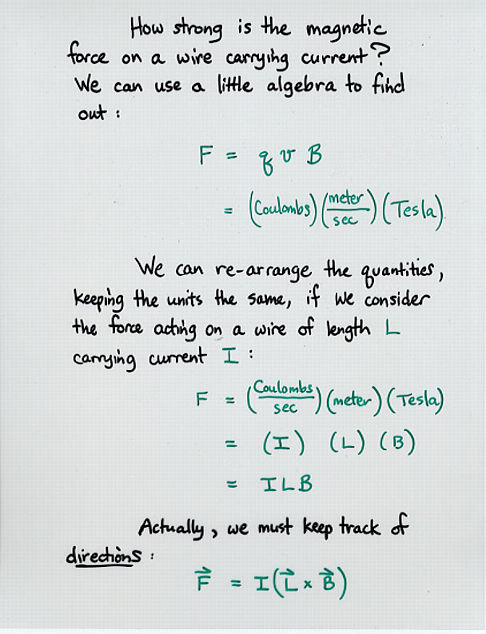 How strong is the magnetic
force on a wire carrying current?
We can use a little algebra to find
out :
F = q v B
= (Coulombs) (meter/sec) (Tesla)
We can re-arrange the quantities,
keeping the units the same, if we consider
the force acting on a wire of length L
carrying current I :
F = (Coulombs/sec) (meter) (Tesla)
= (I) (L) (B)
= I L B
Actually, we must keep track of
directions :
F⃗ = I(L⃗ × B⃗)